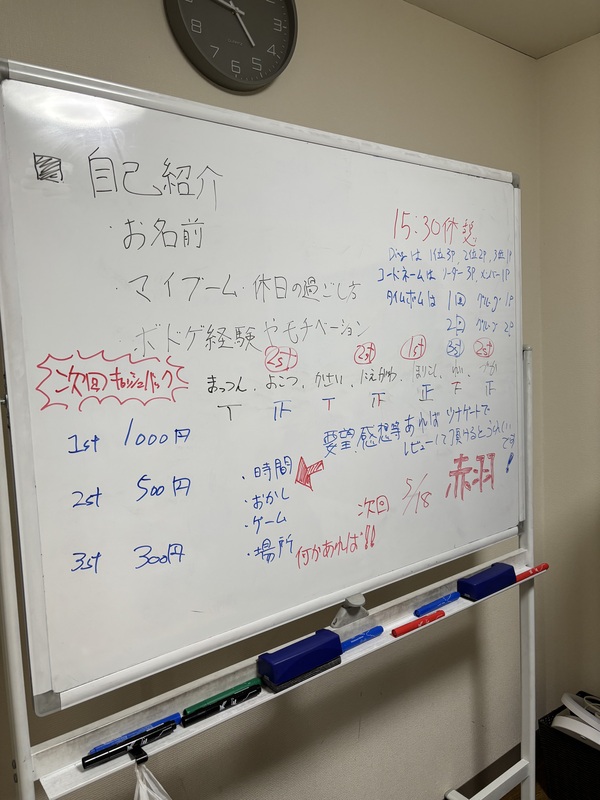 自己紹介
・お名前
・マイブーム・休日の過ごし方
・ボドゲ経験やモチベーション
15:30休憩
Dingは 1位3P, 2位2P, 3位1P
コードネームは リーダー3P, メンバー1P
タイムボムは 1回 グループ 1P
2回 グループ 2P
次回キャッシュバック
2st 2st 1st 3st 2st
まっつん、おこつ、かさい、にえかわ、まりこ
正 正 正
1st 1000円
2st 500円
3st 300円
・時間
・おかし
・ゲーム
・場所
何かあれば!!
要望、感想等あれば ツナゲートで
レビューして頂けるとうれしい
です!
次回 5/18 赤羽
8 7 6 5 4